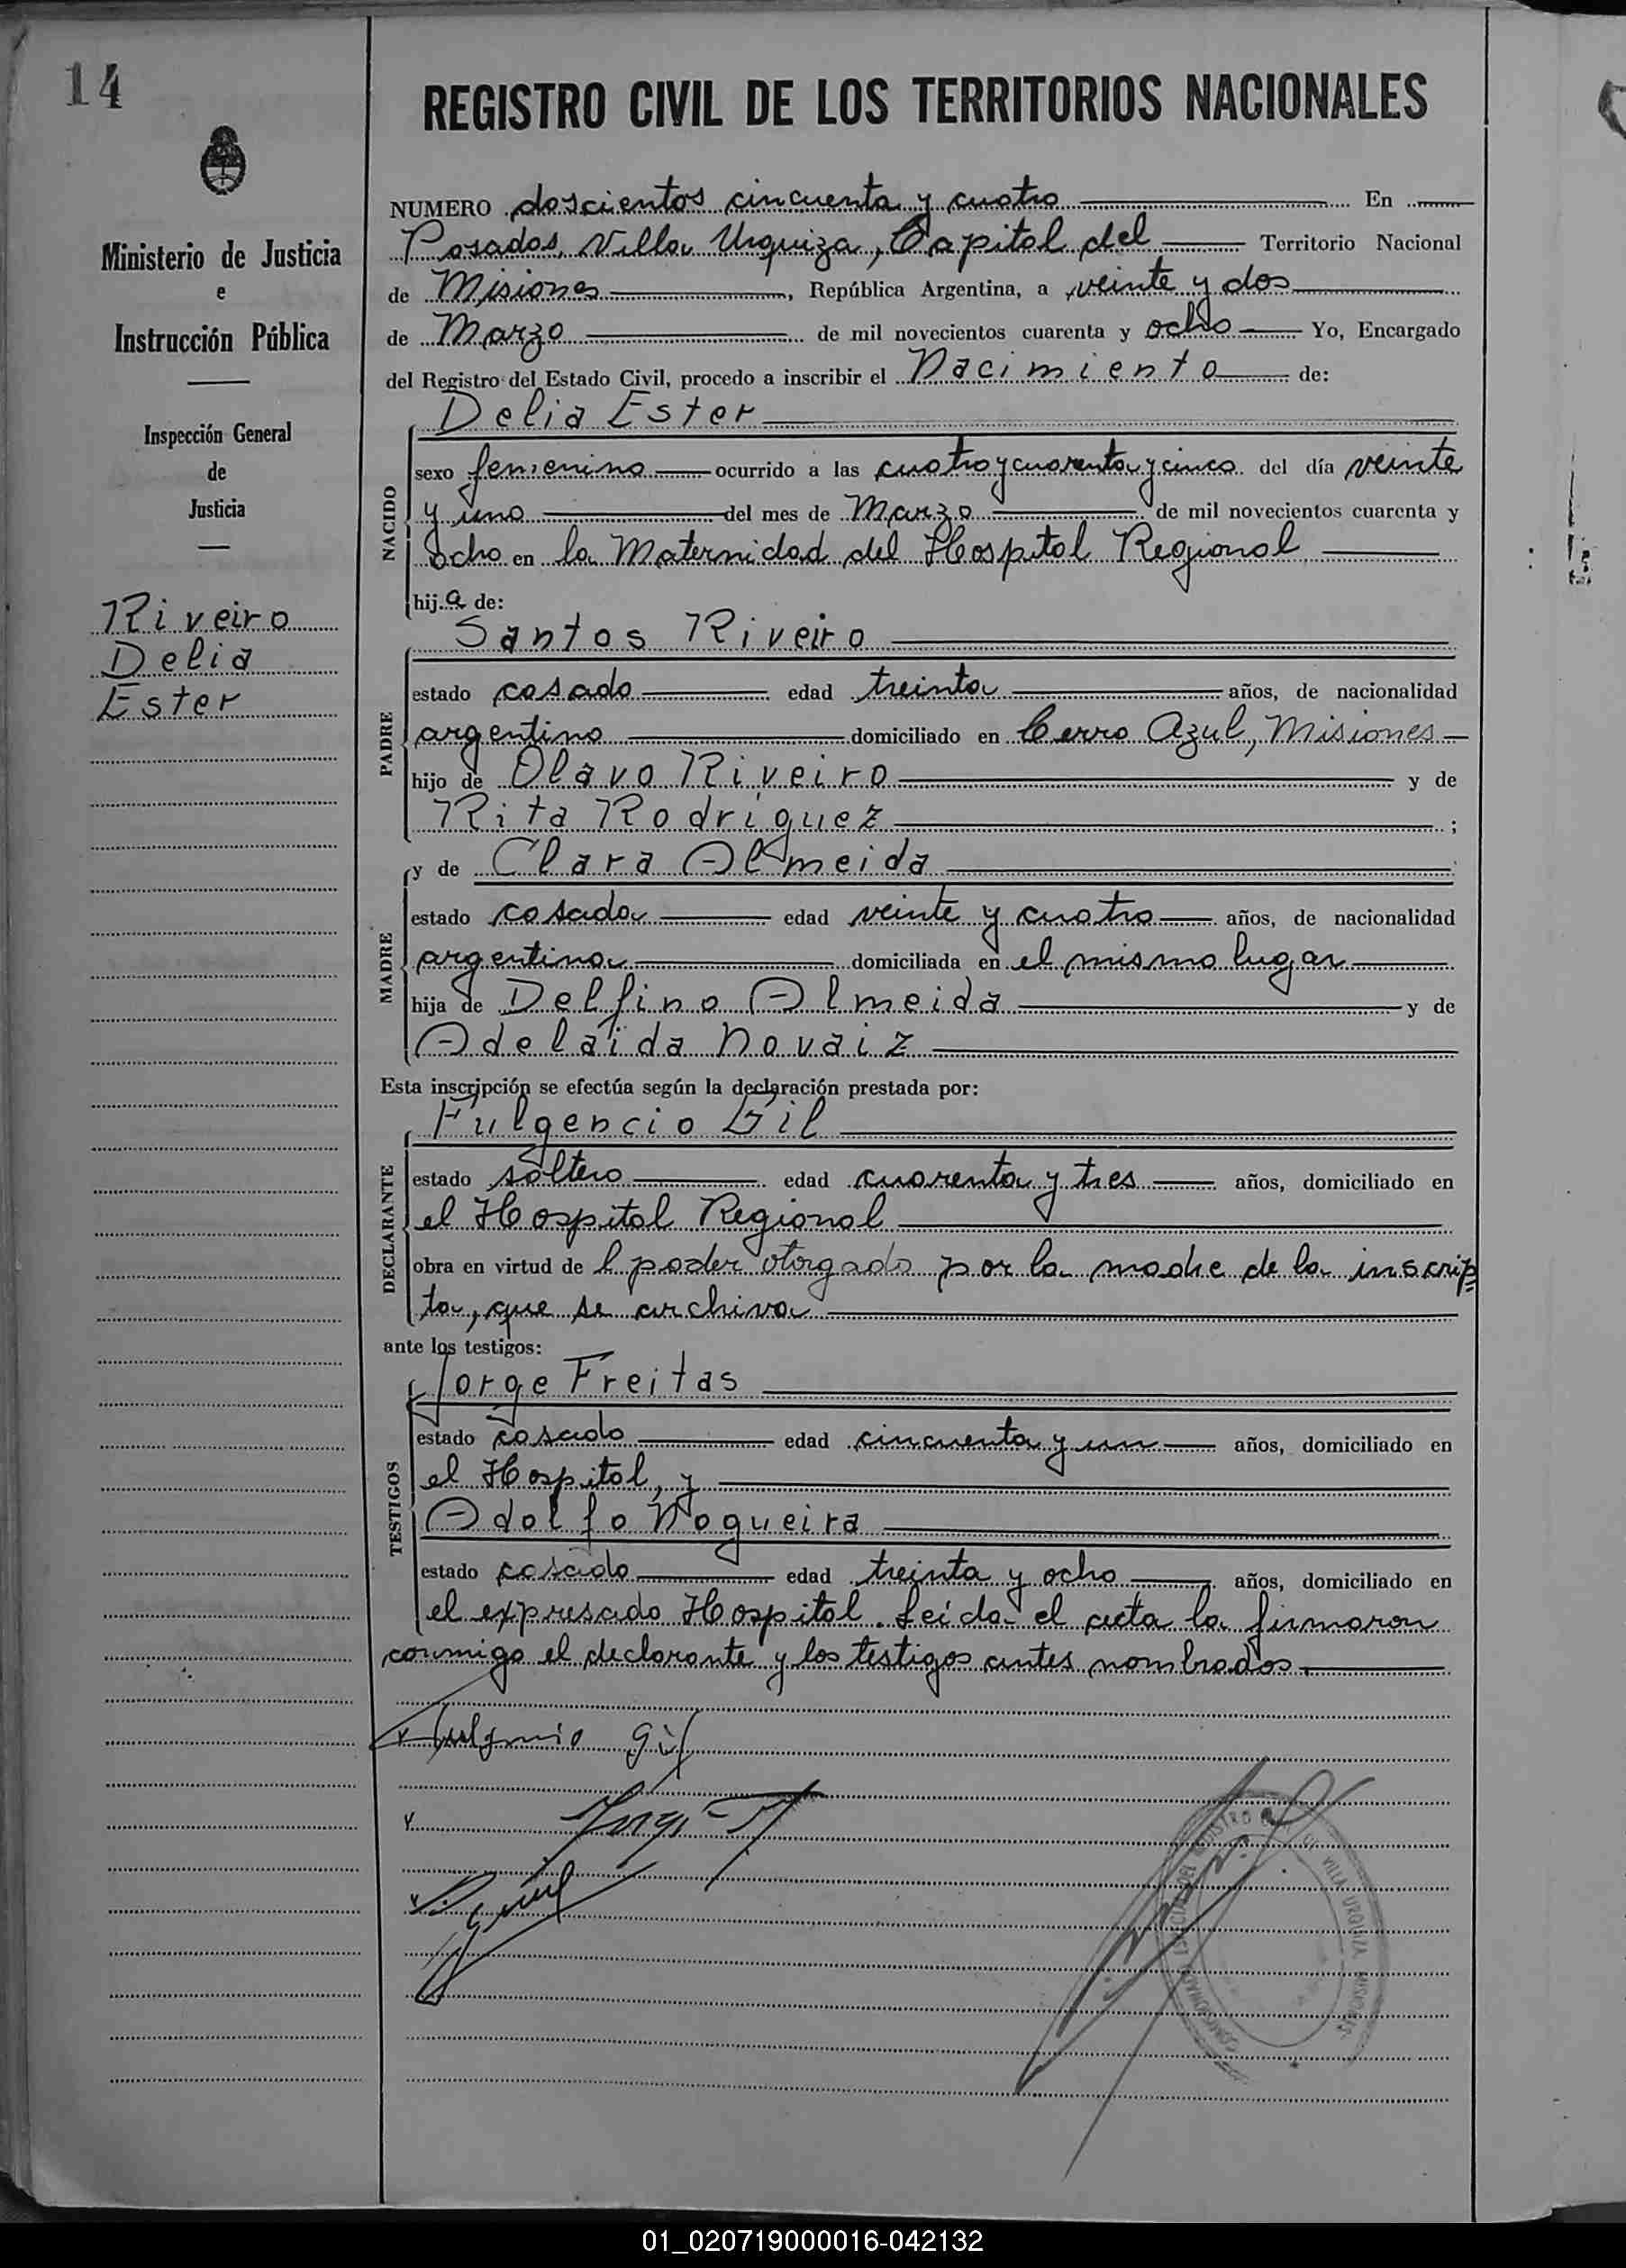 14
REGISTRO CIVIL DE LOS TERRITORIOS NACIONALES
Ministerio de Justicia
e
Instrucción Pública
Inspección General
de
Justicia
Riveiro
Delia
Ester
NUMERO doscientos cincuenta y cuatro En
Posadas, Villa Urquiza, Capital del Territorio Nacional
de Misiones, República Argentina, a veinte y dos
de Marzo de mil novecientos cuarenta y ocho Yo, Encargado
del Registro del Estado Civil, procedo a inscribir el Nacimiento de:
Delia Ester
NACIDO
sexo femenino ocurrido a las cuatro y cuarenta y cinco del día veinte
y uno del mes de Marzo de mil novecientos cuarenta y
ocho en la Maternidad del Hospital Regional
hija de:
Santos Riveiro
PADRE
estado casado edad treinta años, de nacionalidad
argentino domiciliado en Cerro Azul, Misiones
hijo de Olavo Riveiro y de
Rita Rodríguez ;
y de Clara Almeida
MADRE
estado casada edad veinte y cuatro años, de nacionalidad
argentina domiciliada en el mismo lugar
hija de Delfino Almeida y de
Adelaida Novaiz
Esta inscripción se efectúa según la declaración prestada por:
Fulgencio Gil
DECLARANTE
estado soltero edad cuarenta y tres años, domiciliado en
el Hospital Regional
obra en virtud de l poder otorgado por la madre de la inscrip
ta, que se archiva
ante los testigos:
Jorge Freitas
TESTIGOS
estado casado edad cincuenta y un años, domiciliado en
el Hospital, y
Adolfo Nogueira
estado casado edad treinta y ocho años, domiciliado en
el expresado Hospital. Leída el acta la firmaron
conmigo el declarante y los testigos antes nombrados.
Fulgencio Gil
VILLA URQUIZA MISIONES
01_020719000016-042132